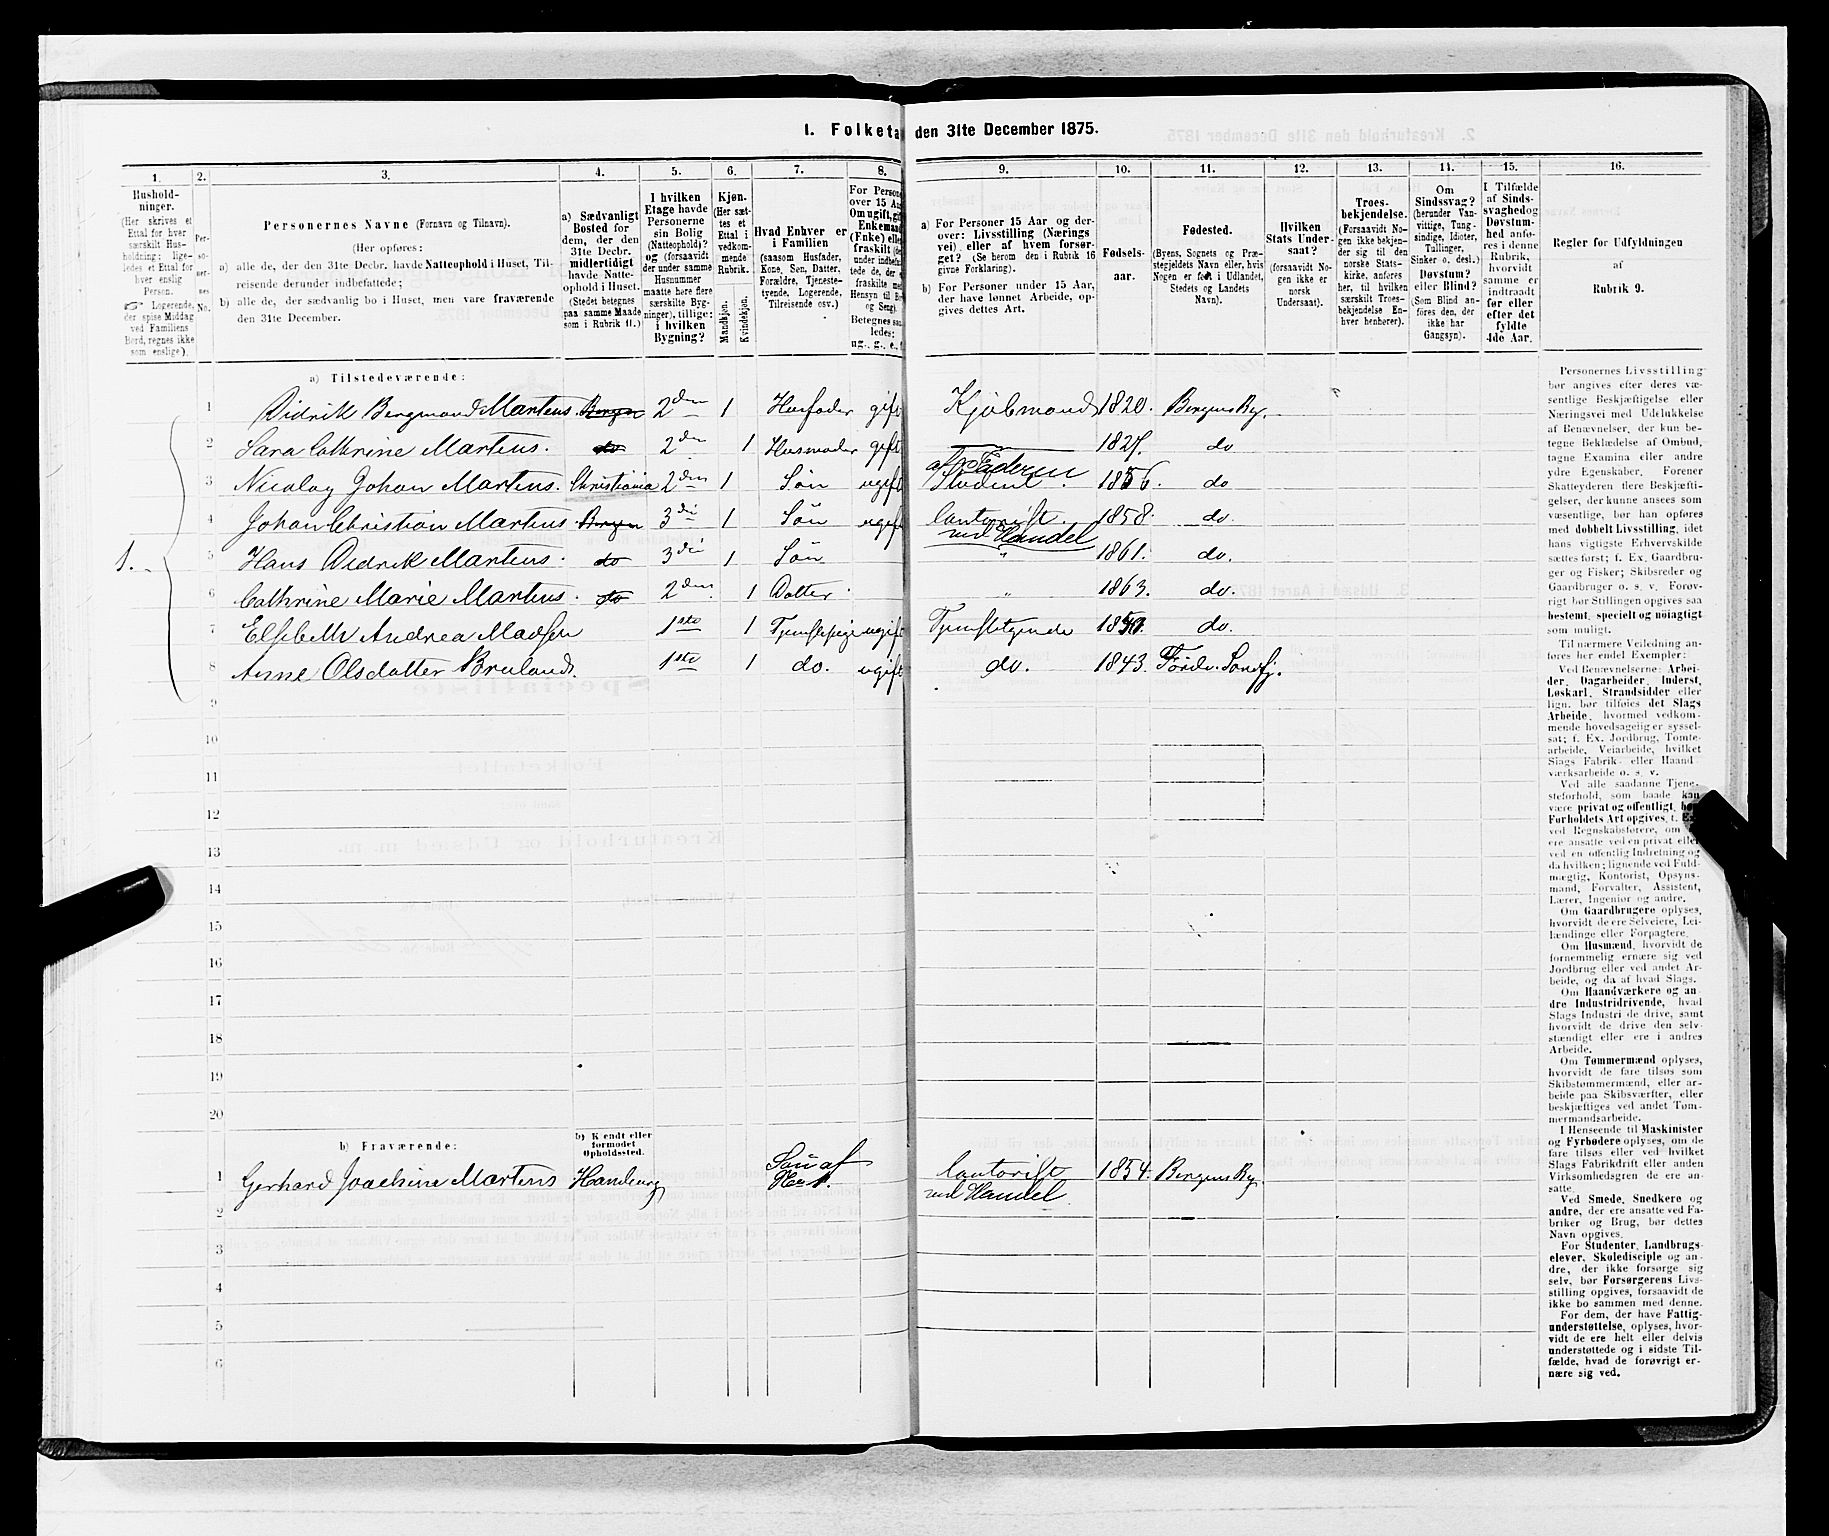 1. Folketa den 31te December 1875.
1. 2. 3. 4. 5. 6. 7. 8. 9. 10. 11. 12. 13. 14. 15. 16.
Hushold-
ninger.
(Her skrives et
Ettal for hver
særskilt Hus-
holdning; lige-
ledes et Ettal for
hver enslig
Person.
☞ Logerende,
der spise Middag
ved Familiens
Bord, regnes ikke
som enslige).
Per-
so-
ner-
nes
No.
Personernes Navne (Fornavn og Tilnavn).
(Her opføres:
a) alle de, der den 31te Decbr. havde Natteophold i Huset, Til-
reisende derunder indbefattede;
b) alle de, der sædvanlig bo i Huset, men vare fraværende
den 31te December.
a) Sædvanligt
Bosted for
dem, der den
31te Decbr.
midlertidigt
havde Natte-
ophold i Huset.
(Stedet betegnes
paa samme Maade
som i Rubrik 11.)
I hvilken
Etage havde
Personerne
sin Bolig
(Natteophold)?
og (forsaavidt
der under samme
Husnummer
maatte høre flere
særskilte Byg-
ninger), tillige:
i hvilken
Bygning?
Kjøn.
(Her sæt-
tes et
Ettal i
vedkom-
mende
Rubrik.
Mandkjøn.
Kvindekjøn.
Hvad Enhver er
i Familien
(saasom Husfader,
Kone, Søn, Datter,
Forældre, Tjeneste-
tyende, Logerende,
Tilreisende osv.)
For Persone
over 15 Aa
Om ugift, gif
Enkemand
(Enke) elle
fraskilt (de
under indbefa
tede de, der e
fraskilte med
Hensyn til Bo
og Seng).
Betegnes saa
ledes:
ug., g., e., f
a) For Personer 15 Aar og der-
over: Livsstilling (Nærings
vei) eller af hvem forsør-
get? (Se herom den i Rubrik 16
givne Forklaring).
b) For Personer under 15 Aar,
der have lønnet Arbeide, op-
gives dettes Art.
Fødsels-
aar.
Fødested.
(Byens, Sognets og Præ-
stegjeldets Navn eller, hvis
Nogen er født i Udlandet,
Stedets og Landets
Navn).
Hvilken
Stats Under-
saat?
(forsaavidt No-
gen ikke er
norsk
Undersaat).
Troes-
bekjendelse.
(Forsaavidt No-
gen ikke bekjen-
der sig til den
norske Stats-
kirke, anføres
her, til hvilken
særskilt Troes-
bekjendelse En-
hver henhører).
Om
Sindssvag?
(herunder Van-
vittige, Tung-
sindige, Idioter,
Tullinger,
Sinker o. desl.)
Døvstum?
eller Blind?
(Som Blind an-
føres den, der
ikke har
Gangsyn).
I Tilfælde
af Sinds-
svaghed og
Døvstum-
hed anfø-
res i denne
Rubrik,
hvorvidt
samme er
indtraadt
før eller
efter det
fyldte
4de Aar.
Regler for Udfyldningen
af
Rubrik 9.
a) Tilstedeværende:
1 Didrik Bergmand Martens. Bergen 2den 1 Husfader gift Kjøbmand 1820. Bergens By.
2 Sara Cathrine Martens. do 2den 1 Husmoder gift 1827. do
3 Nicolay Johan Martens. Christiania 2den 1 Søn ugift Student af Faderen 1856. do
4 Johan Christian Martens. Bergen 3die 1 Søn ugift Contorist ved Handel 1858. do.
1. 5 Hans Didrik Martens. do 3die 1 Søn " 1861. do.
6 Cathrine Marie Martens. do 2den 1 Datter " 1863. do.
7 Elsebeth Andrea Madsen 1ste 1 Tjenstepige ugift Tjenstetyende do.
8 Anne Olsdatter Bruland. 1ste 1 do. ugift do. 1843. Førde Søndfj.
9
10
11
12
13
14
15
16
17
18
19
20
b) Fraværende:
b) Kendt eller
formodet
Opholdssted.
1 Gerhard Joachim Martens Hamburg Søn af No 1. Contorist ved Handel 1854. Bergens By
2
3
4
5
6
Personernes Livsstilling
bør angives efter deres væ-
sentlige Beskjæftigelse eller
Næringsvei med Udelukkelse
af Benævnelser, der kun be-
tegne Beklædelse af Ombud,
tagne Examina eller andre
ydre Egenskaber. Forener
Skatteyderen flere Beskjæfti-
gelser, der kunne ansees som
væsentlige, bør han opføres
med dobbelt Livsstilling, idet
hans vigtigste Erhvervskilde
sættes først; f. Ex. Gaardbru-
ger og Fisker; Skibsreder og
Gaardbruger o. s. v. Forøv-
rigt bør Stillingen opgives saa
bestemt, specielt og nøiagtigt
som muligt.
Til nærmere Veiledning an-
føres her endel Exempler:
Ved Benævnelserne: Arbei-
der, Dagarbeider, Inderst,
Løskarl, Strandsidder eller
lign. bør tilføies det Slags
Arbeide, hvormed vedkom-
mende hovedsagelig er syssel-
sat; f. Ex. Jordbrug, Tomte-
arbeide, Veiarbeide, hvilket
Slags Fabrik- eller Haand-
værksarbeide o. s. v.
Ved alle saadanne Tjene-
steforhold, som baade kan
være privat og offentligt, bør
Forholdets Art opgives, t. E.
ved Regnskabsførere, om
ere ansatte ved en privat eller
ved en offentlig Indretning og
da hvilken; lignende ved Fuld-
mægtig, Kontorist, Opsyns-
mand, Forvalter, Assistent,
Lærer, Ingeniør og andre.
Om Gaardbrugere oplyses,
hvorvidt de ere Selveiere, Lei-
lændinge eller Forpagtere.
Om Husmænd, hvorvidt de
fornemmelig ernære sig ved
Jordbrug eller ved andet Ar-
beide, og da af hvad Slags.
Om Haandværkere og an-
dre Industridrivende, hvad
Slags Industri de drive, samt
hvorvidt de drive den selv-
stændigt eller ere i andres
Arbeide.
Om Tømmermænd oplyses,
hvorvidt de fare tilsøs som
Skibstømmermænd, eller ar-
beide paa Skibsværfter, eller
beskjæftiges ved andet Tøm-
mermandsarbeide.
I Henseende til Maskinister
og Fyrbødere oplyses, om de
fare tilsøs eller ved hvilket
Slags Fabrikdrift eller anden
Virksomhedsgren de ere an-
satte.
Ved Smede, Snedkere og
andre, der ere ansatte ved Fa-
briker og Brug, bør dettes
Navn opgives.
For Studenter, Landbrugs-
elever, Skoledisciple og an-
dre, der ikke forsørge sig
selv, bør Forsørgerens Livs-
stilling opgives, forsaavidt de
ikke bo sammen med denne.
For dem, der have Fattig-
understøttelse, oplyses, hvor-
vidt de ere helt eller delvis
understøttede og i sidste Til-
fælde, hvad de forøvrigt er-
nære sig ved.